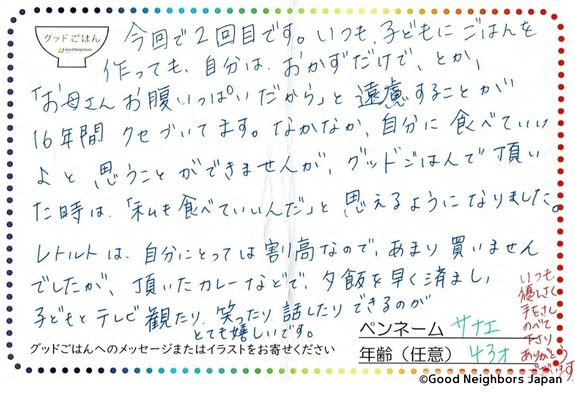 グッドごはん
Good Neighbors
今回で2回目です。いつも、子どもにごはんを
作っても、自分は、おかずだけで、とか、
「お母さんお腹いっぱいだから」と遠慮することが
16年間クセづいてます。なかなか、自分に食べていい
よと思うことができませんが、グッドごはんで頂い
た時は、「私も食べていいんだ」と思えるようになりました。
レトルトは、自分にとっては割高なので、あまり買いません
でしたが、頂いたカレーなどで、夕飯を早く済まし、
子どもとテレビ観たり、笑ったり話したりできるのが
とても嬉しいです。
いつも
優しく
手をさし
のべて
下さり
ありがとう
ございます。
ペンネーム サナエ
年齢(任意) 43才
グッドごはんへのメッセージまたはイラストをお寄せください
©Good Neighbors Japan